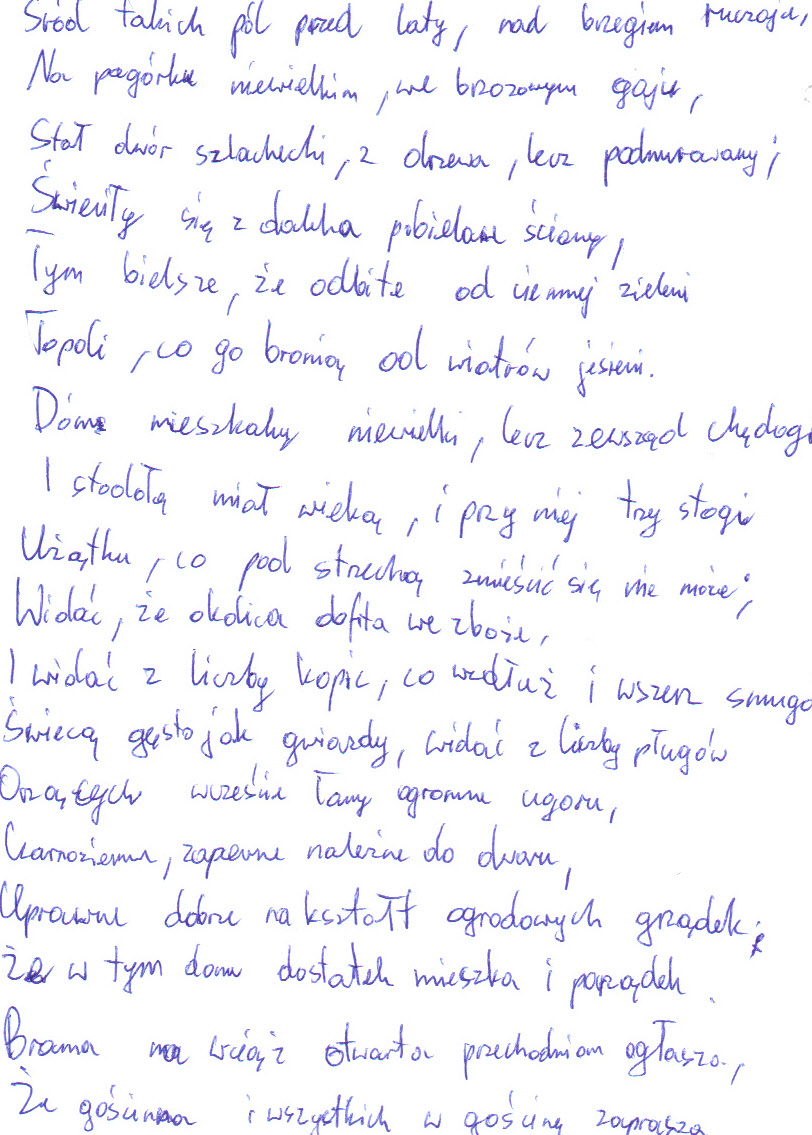 Śród takich pól przed laty, nad brzegiem ruczaju,
Na pagórku niewielkim, we brzozowym gaju,
Stał dwór szlachecki, z drzewa, lecz podmurowany;
Świeciły się z daleka pobielane ściany,
Tym bielsze, że odbite od ciemnej zieleni
Topoli, co go bronią od wiatrów jesieni.
Dóm mieszkalny niewielki, lecz zewsząd chędogi
I stodołą miał wieką, i przy niej trzy stogi
Użątku, co pod strzechą zmieścić się nie może;
Widać, że okolica obfita we zboże,
I widać z liczby kopic, co wzdłuż i wszerz smugo
Świecą gęsto jak gwiazdy, widać z liczby pługów
Orzących wcześnie łany ogromne ugoru,
Czarnoziemne, zapewne należne do dworu,
Uprawne dobrze na kształt ogrodowych grządek;
Że w tym domu dostatek mieszka i porządek.
Brama na wciąż otwarta przechodniom ogłasza,
Że gościnna i wszystkich w gościnę zaprasza